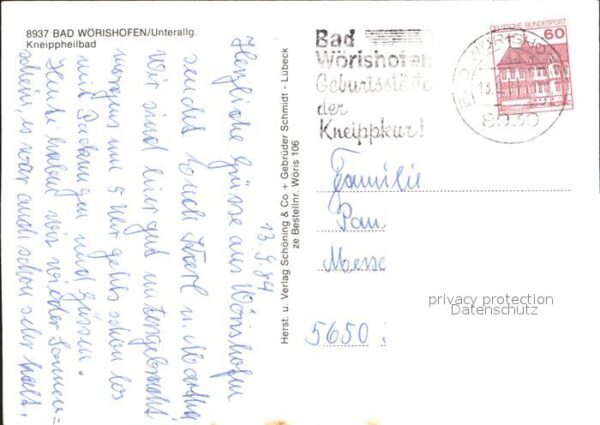 8937 BAD WÖRISHOFEN/Unterallg.
Kneippheilbad
13.9.84
Herzliche Grüsse aus Wörishofen
sendet Euch Karl u. Martha
wir sind hier gut untergebracht
morgens um 5 Uhr gehts schon los
mit Packungen und Güssen.
Heute haben wir wieder Sonnen=
schein, es war auch schon sehr kalt.
Herst. u. Verlag Schöning & Co + Gebrüder Schmidt - Lübeck
ze Bestellnr. Wöris 106
Bad
Wörishofen
Geburtsstätte
der
Kneippkur!
DEUTSCHE BUNDESPOST
60
BAD WÖRISHOFEN
13
8939
Familie
Pau
Messe
5650
privacy protection
Datenschutz